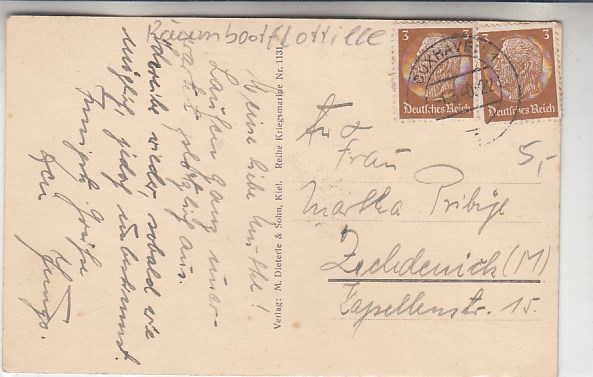 Räumbootflottille
Meine liebe Mutti!
Laufen ganz uner-
wartet plötzlich aus.
Schreibe wieder, sobald wie
möglich, jedoch unbestimmt.
Innigste Grüße
Dein
Verlag: M. Dieterle & Sohn, Kiel. Reihe Kriegsmarine Nr. 1131
3
3
Deutsches Reich
Deutsches Reich
CUXHAVEN 1
An
Frau
Martha Pribije
Zehdenick (M)
Kapellenstr. 15.
5,-